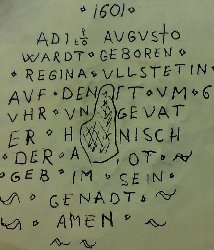 • 1601 •
ADI 1 to AVGVSTO
WARDT • GEBOREN •
• REGINA • VLLSTETIN •
AVF • DEN ST • VM • 6
VHR • VN GEVAT
ER • H NISCH
• DER • A OT •
GEB • IM • SEIN •
GENADT •
• AMEN •